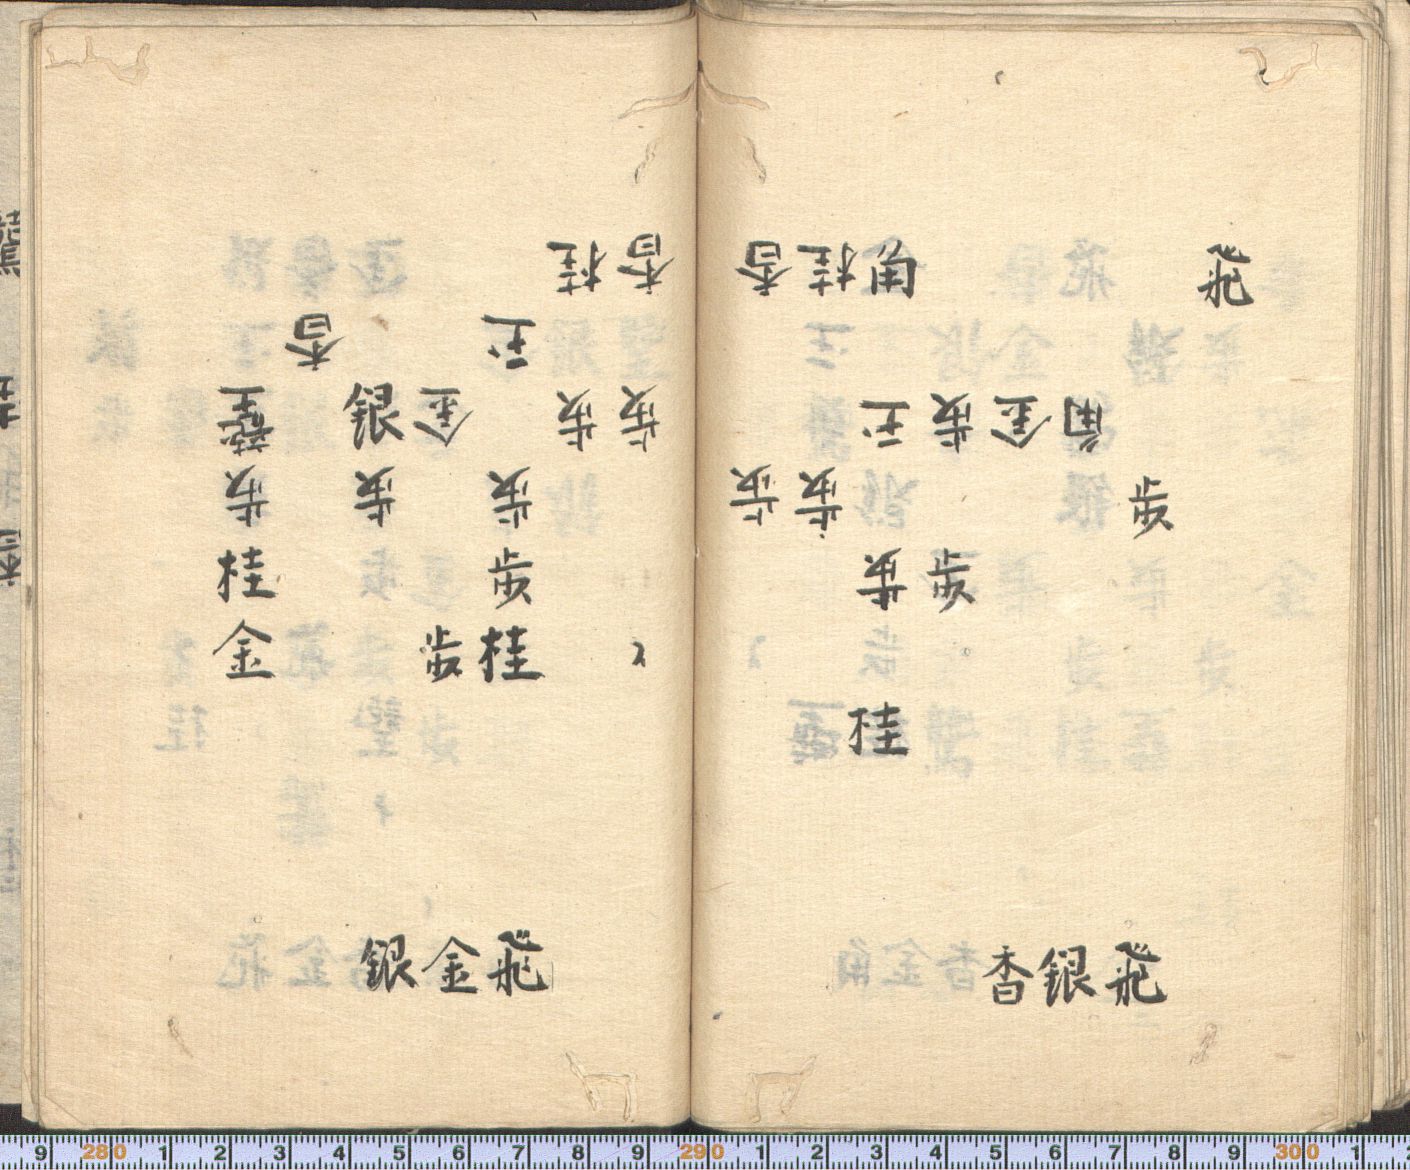 香桂角飛
玉歩金角
歩歩歩
歩歩
桂
香銀飛
桂香
香玉
銀金歩歩
歩歩歩
桂歩
金歩桂
銀金飛
9 280 1 2 3 4 5 6 7 8 9 290 1 2 3 4 5 6 7 8 9 300 1 2